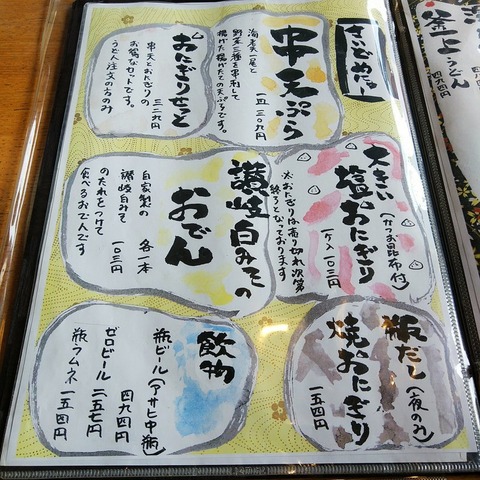 さいどめにゅー
串天ぷら
海老天一尾と
野菜三種を串刺して
揚げた揚げたての天ぷらです。
一皿 三〇九円
おにぎりせっと
串天とおにぎりの
お得なセットです。
うどん注文の方のみ
三二九円
大きい
塩おにぎり
(かつお昆布付)
一ケ 一〇三円
※おにぎりは売り切れ次第
終了となっております
讃岐白みその
おでん
自家製の
讃岐白みそ
のたれをつけて
食べるおでんです
各一本
一〇三円
瓶だし
(夜のみ)
焼おにぎり
一五四円
飲物
瓶ビール(アサヒ中瓶)
四九四円
ゼロビール
二五七円
瓶ラムネ
一五四円
釜上げうどん
四九四円